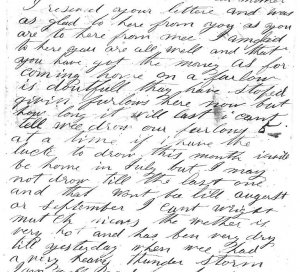 I reseved your letter and was
as glad to here from you as you
are to here from mee I am glad
to here you are all well and that
you have got the money as for
coming home on a furlow
is doutfull they have stoped
givin furlows here now but
how long it will last i cant
tell wee drow our furlows 5
at a time if i have the
luck to drow this month i will
be home in July but I may
not drow till the last one
and that wont be till august
or september I cant wright
mutch nicor the wether is
very hot and has ben very dry
till yesterday when wee had
a very heavy thunder storm